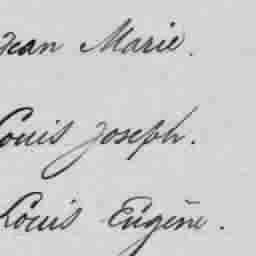 Jean Marie.
Louis Joseph.
Louis Eugène.